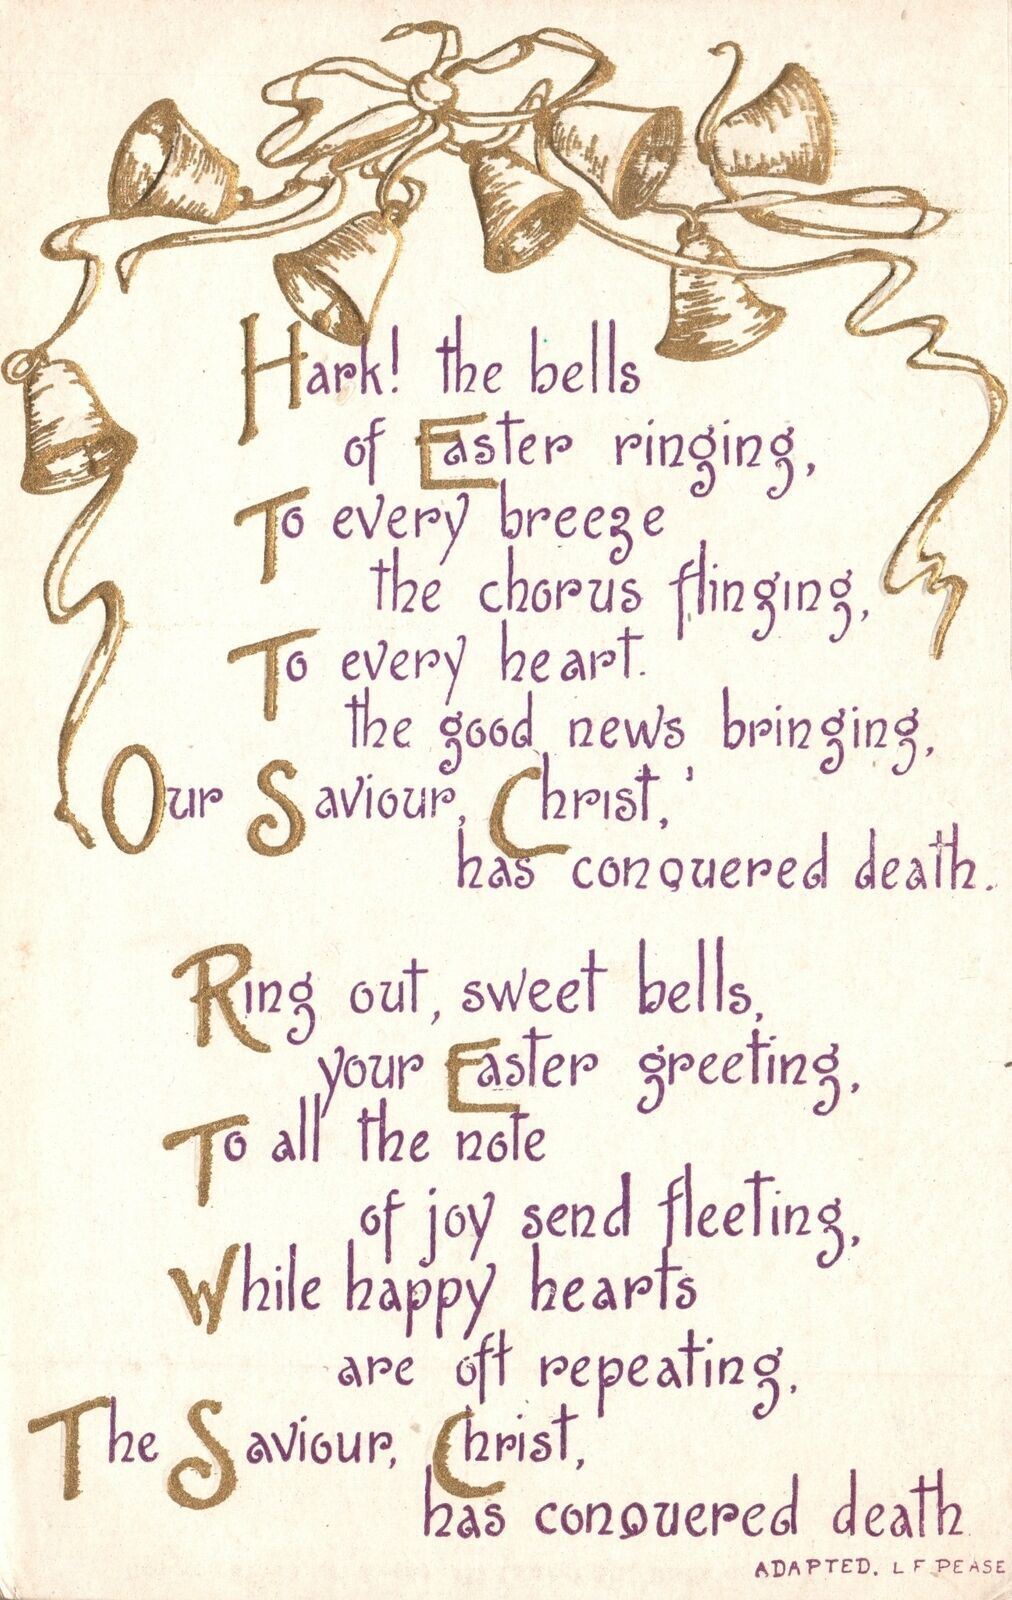 Hark! the bells
of Easter ringing,
To every breeze
the chorus flinging,
To every heart.
the good news bringing,
Our Saviour, Christ,'
has conquered death.
Ring out, sweet bells,
your Easter greeting,
To all the note
of joy send fleeting,
While happy hearts
are oft repeating,
The Saviour, Christ,
has conquered death
ADAPTED. L F PEASE